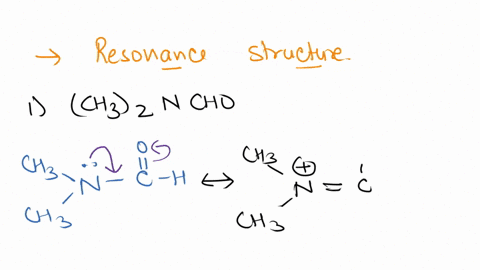 → Resonance structure.
1) (CH3)2 N CHO
CH3 O CH3 ⊕
N – C – H ↔ N = C
CH3 CH3